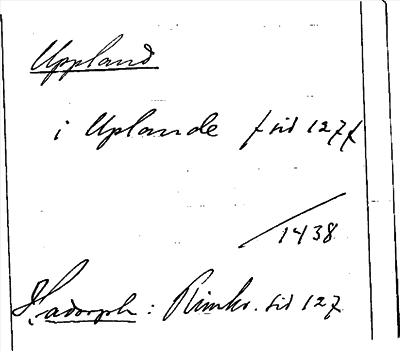 Uppland
i Uplande f sid 127 f
1438
Hadorph: Rimkr. sid 127